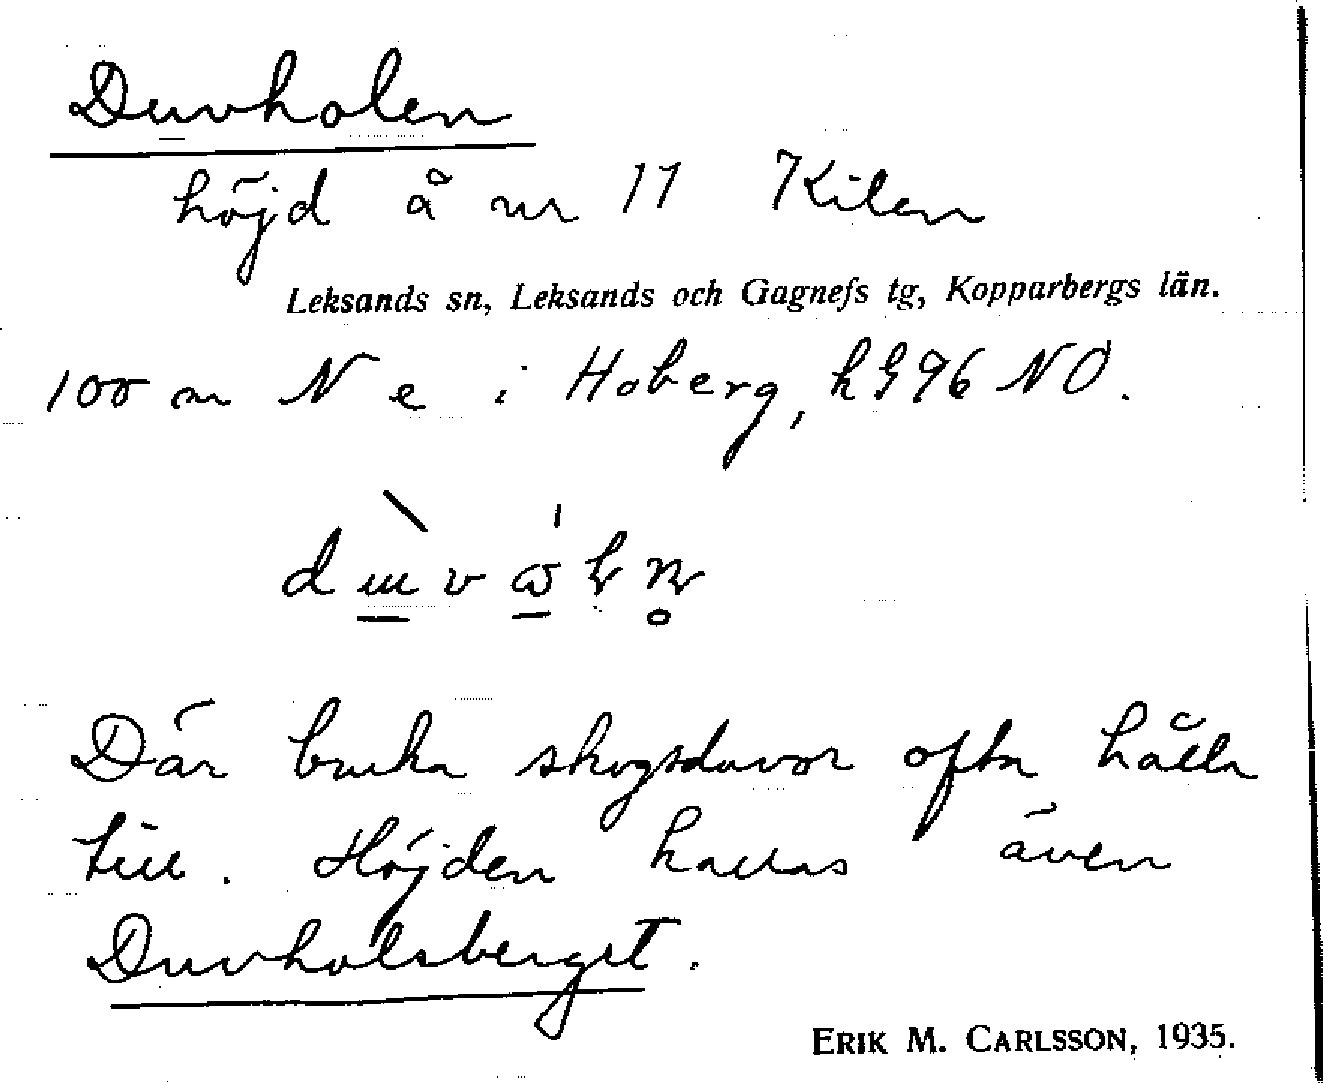 Duvholen
höjd å nr 11 Kilen
Leksands sn, Leksands och Gagnefs tg, Kopparbergs län.
100 m N e i Hoberg, NO.
Där bruka skogsduvor ofta hålla
till. Höjden kallas även
Duvholsberget.
ERIK M. CARLSSON, 1935.